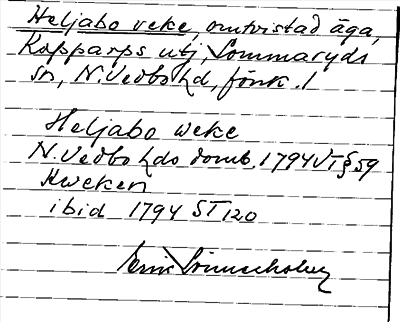 Heljabo veke, omtvistad äga,
Kopparps utj, Sommaryds
sn, N. Vedbo hd, Jönk. l
Heljabo weke
N. Vedbo hds domb. 1794 VT § 59
Kweken
ibid 1794 ST 120